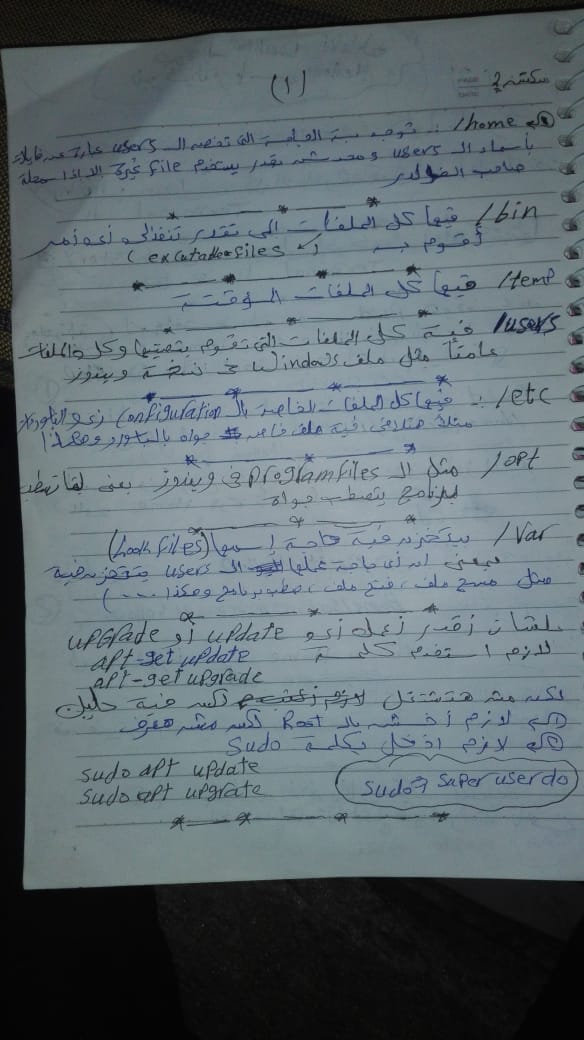 سكشن 2
(1)
/home : توجد بيه الخاصة التى تخص الـ users عبارة عن فايلات
بأسماء الـ users ومحدش يقدر يستخدم file غيره الا اذا سمحله
صاحب الفولدر
/bin فيها كل الملفات الى تقدر تنفذ اى أمر
أقوم به (executable files)
/temp فيها كل الملفات المؤقتة
/users فيه كل الملفات التى تقوم بتصتبها وكل الملفات
عامتاً مثل ملف Windows فى نسخة ويندوز
/etc : فيها كل الملفات الخاصه بالـ Configuration زى الباورد
مثلا هتلاقى فيه ملف خاص جواه بالباورد وهكذا
/opt مثل الـ Program files فى ويندوز يعنى لما تسطب
البرنامج يتصطب جواه
/Var بيتخزن فيه حاجة إسمها (Look files)
بمعنى ان أى حاجة عملها الـ users بتتخزن فيه
مثل مسح ملف ، فتح ملف ، صطب برنامج وهكذا ...)
علشان أقدر أعمل أى update أو upGrade
لازم استخدم كلمة apt-get update
apt-get upgrade
لكن مش هتشتغل لكن فيه حلين
① لازم أخش بالـ Root لكن مش هعرف
② لازم ادخل بكلمة Sudo
sudo apt update
sudo apt upgrate
sudo → super user do